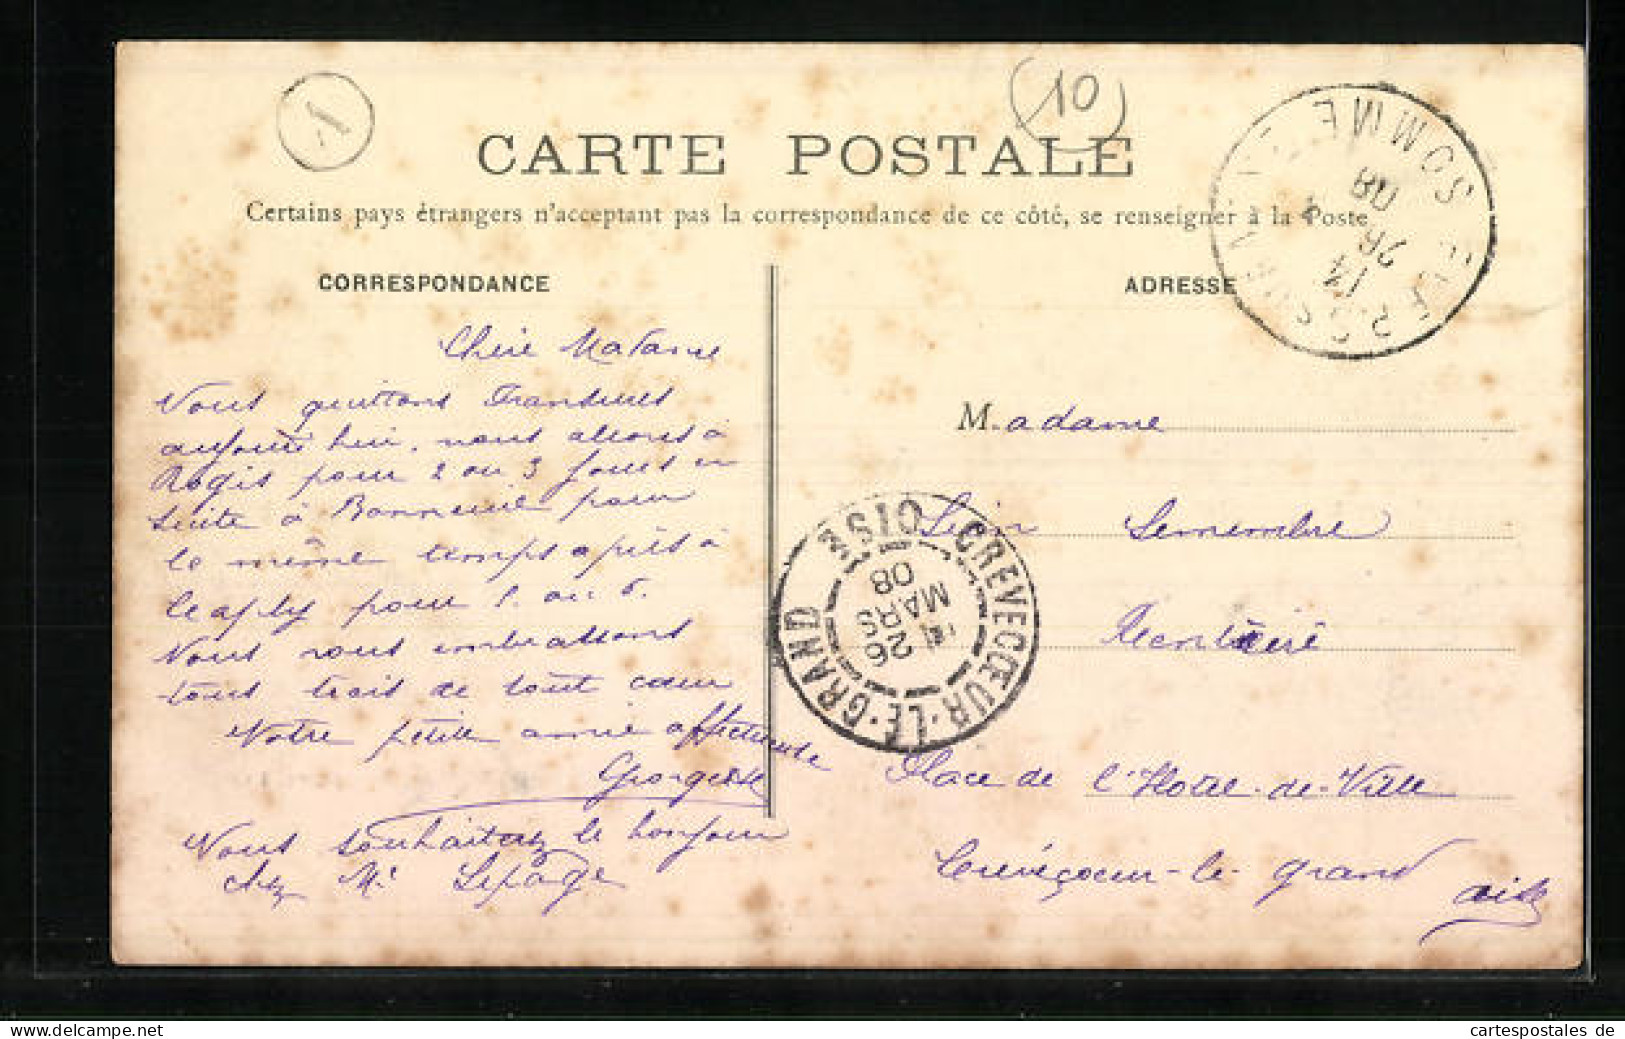 A
10
CARTE POSTALE
Certains pays étrangers n'acceptant pas la correspondance de ce côté, se renseigner à la Poste
CORRESPONDANCE
Chère Madame
Nous quittons
aujourd'hui, nous allons à
pour 2 ou 3 jours en
suite à Bonneuil pour
le même temps après à
pour 5 ou 6.
Nous vous embrassons
tous trois de tout cœur
Notre petite amie affectueuse
Georgette
Nous souhaiterez le bonjour
chez Mr Lepage
ADRESSE
Madame
Senembre
Rentière
Place de l'Hotel-de-Ville
Crèvecœur-le-grand
Oise
CREVECŒUR-LE-GRAND OISE
6 26 MARS 08
SOMME
14 26 08
cartespostales de